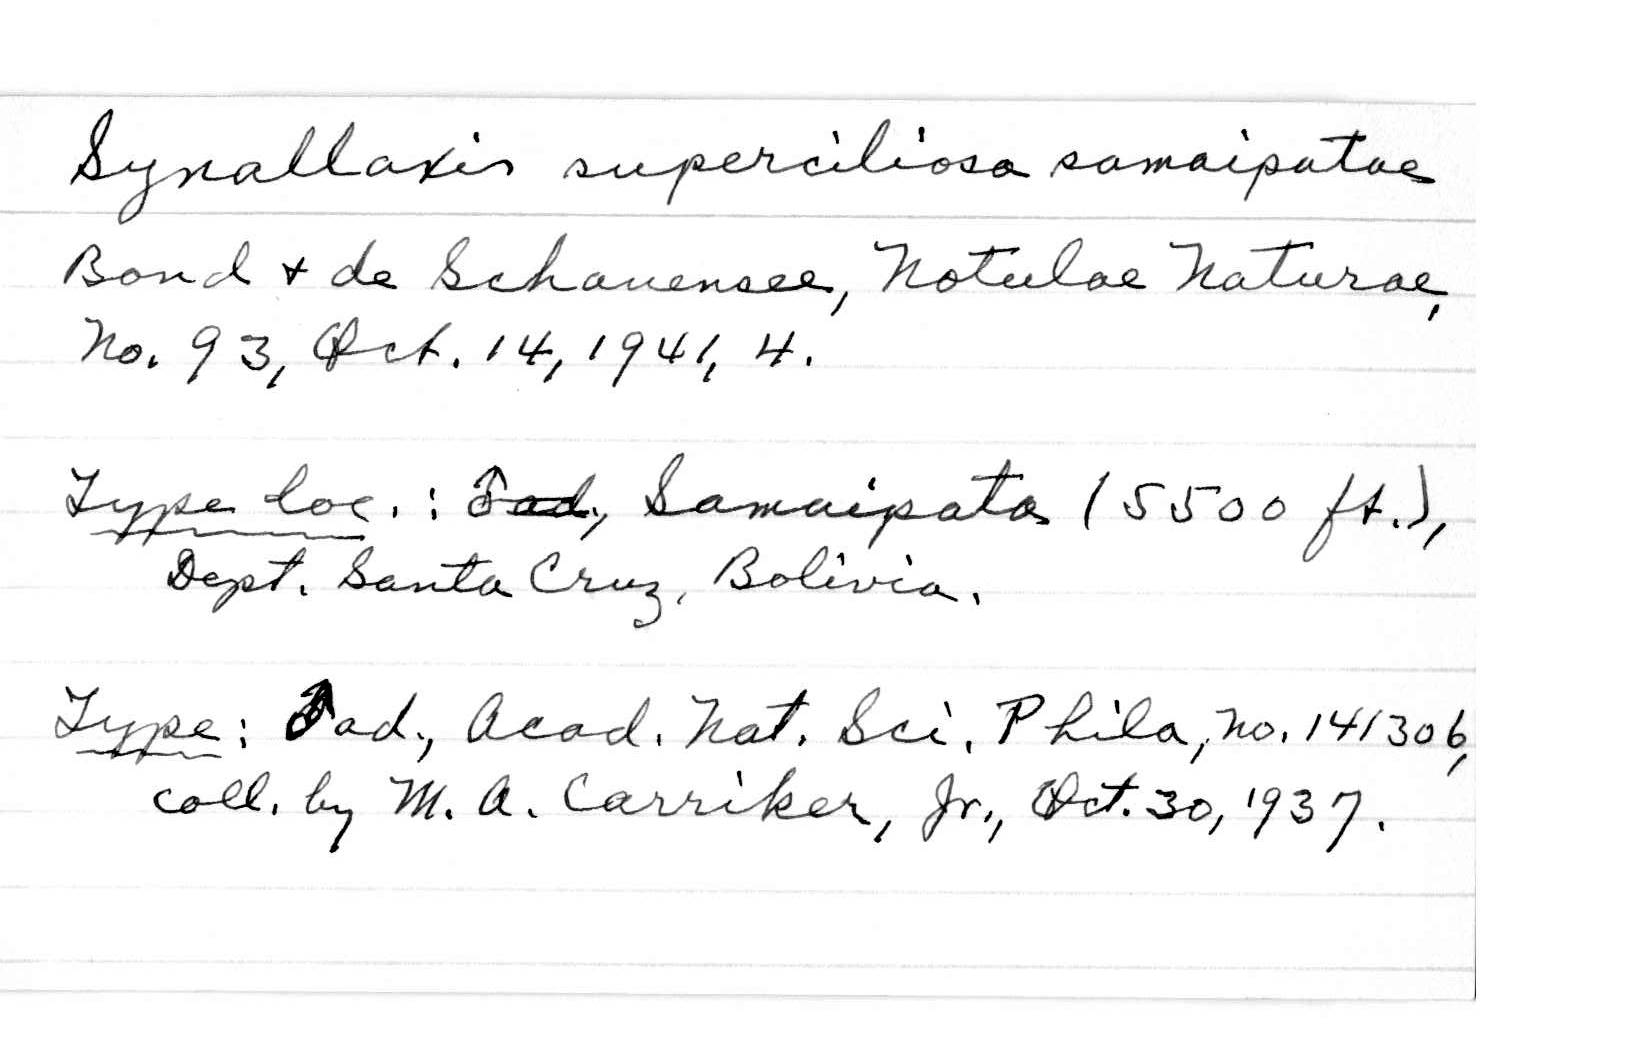 Synallaxis superciliosa samaipatae
Bond + de Schauensee, Notulae Naturae,
No. 93, Oct. 14, 1941, 4.
Type loc.: ad., Samaipata (5500 ft.),
Dept. Santa Cruz, Bolivia.
Type: ♂ ad., Acad. Nat. Sci. Phila, no. 141306,
coll. by M. A. Carriker, Jr., Oct. 30, 1937.